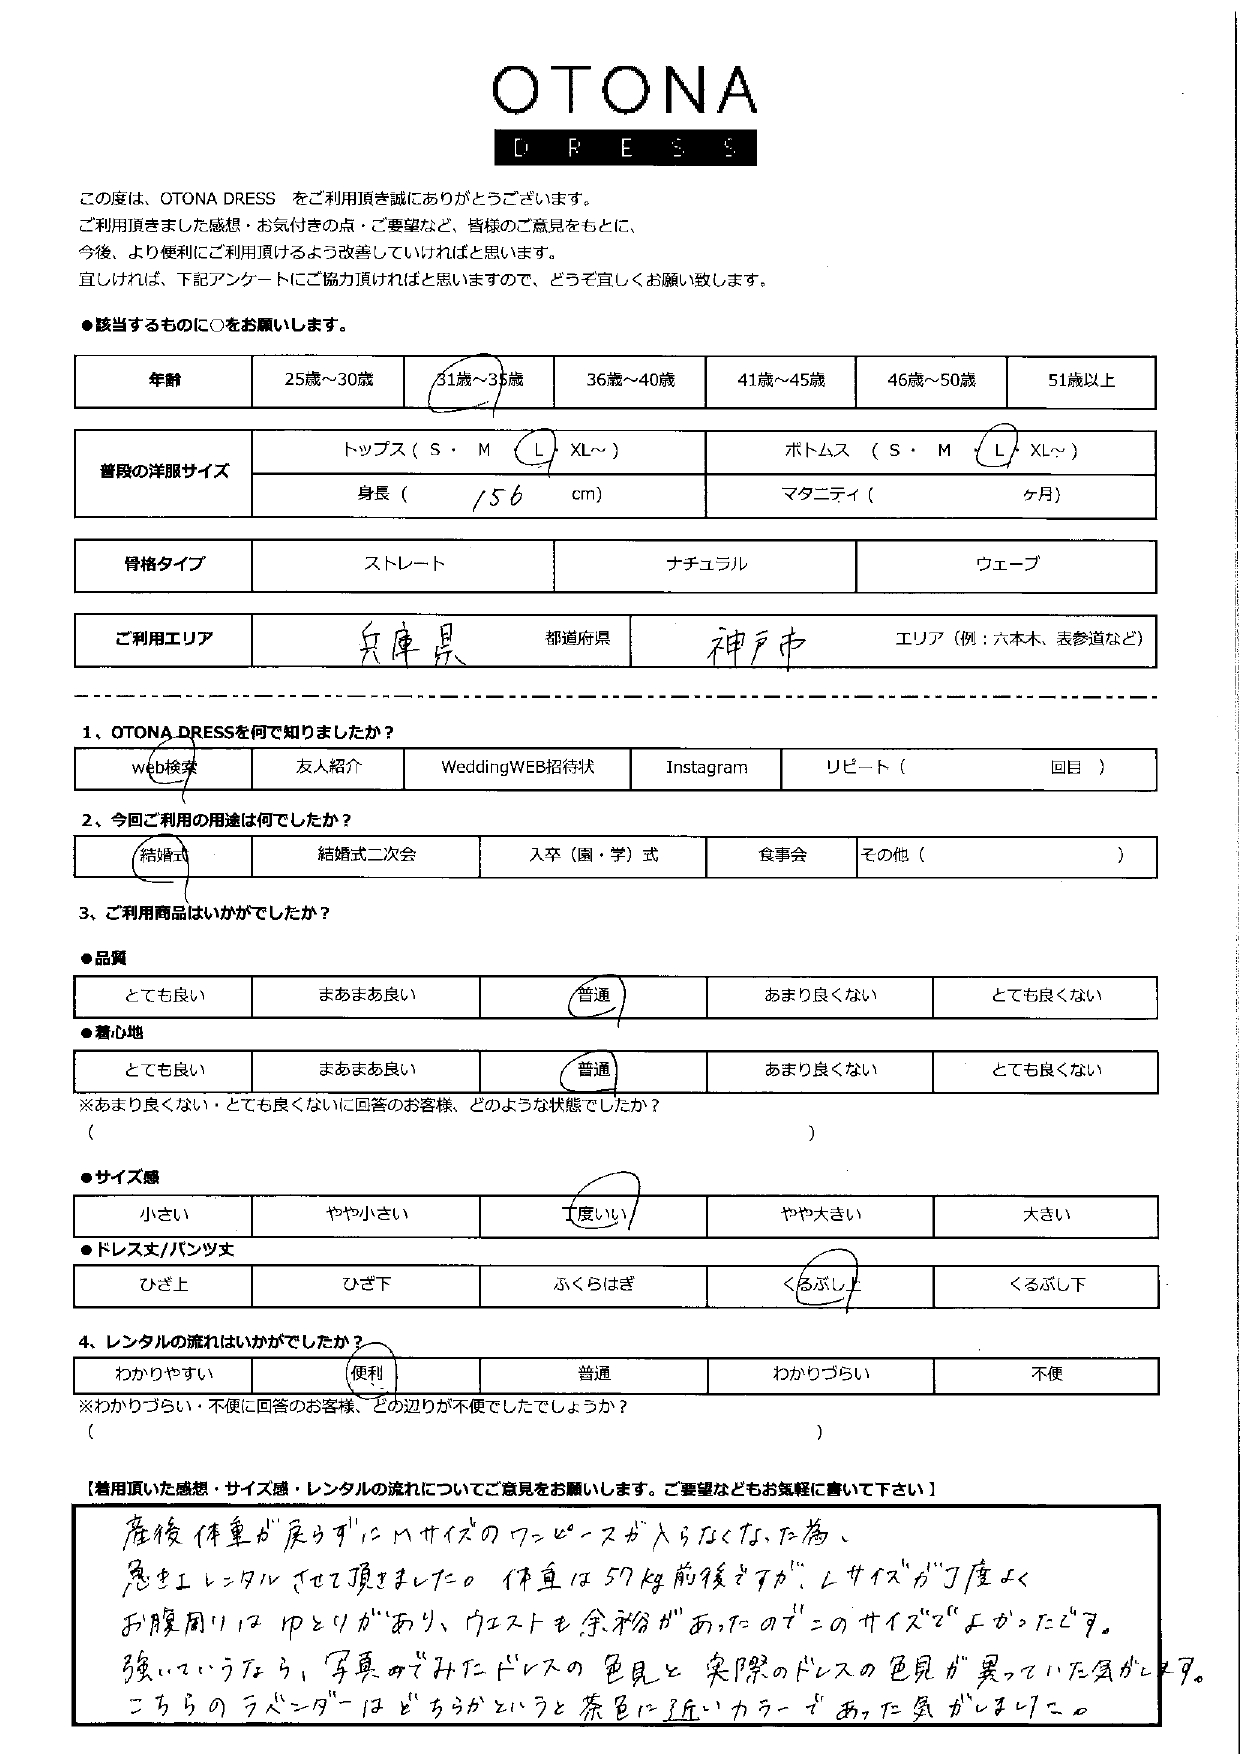 OTONA
DRESS
この度は、OTONA DRESS　をご利用頂き誠にありがとうございます。
ご利用頂きました感想・お気付きの点・ご要望など、皆様のご意見をもとに、
今後、より便利にご利用頂けるよう改善していければと思います。
宜しければ、下記アンケートにご協力頂ければと思いますので、どうぞ宜しくお願い致します。
●該当するものに○をお願いします。
年齢 25歳～30歳 31歳～35歳 36歳～40歳 41歳～45歳 46歳～50歳 51歳以上
普段の洋服サイズ トップス ( S ・ M ・ L ・ XL～ ) ボトムス ( S ・ M ・ L ・ XL～ )
身長 ( 156 cm) マタニティ ( ヶ月)
骨格タイプ ストレート ナチュラル ウェーブ
ご利用エリア 兵庫県 都道府県 神戸市 エリア（例：六本木、表参道など）
1、OTONA DRESSを何で知りましたか？
web検索 友人紹介 WeddingWEB招待状 Instagram リピート（ 回目 ）
2、今回ご利用の用途は何でしたか？
結婚式 結婚式二次会 入卒（園・学）式 食事会 その他（ ）
3、ご利用商品はいかがでしたか？
●品質
とても良い まあまあ良い 普通 あまり良くない とても良くない
●着心地
とても良い まあまあ良い 普通 あまり良くない とても良くない
※あまり良くない・とても良くないに回答のお客様、どのような状態でしたか？
（ ）
●サイズ感
小さい やや小さい 丁度いい やや大きい 大きい
●ドレス丈/パンツ丈
ひざ上 ひざ下 ふくらはぎ くるぶし上 くるぶし下
4、レンタルの流れはいかがでしたか？
わかりやすい 便利 普通 わかりづらい 不便
※わかりづらい・不便に回答のお客様、どの辺りが不便でしたでしょうか？
（ ）
【着用頂いた感想・サイズ感・レンタルの流れについてご意見をお願いします。ご要望などもお気軽に書いて下さい】
産後体重が戻らずにMサイズのワンピースが入らなくなった為、
急きょレンタルさせて頂きました。体重は57kg前後ですが、Lサイズが丁度よく
お腹周りはゆとりがあり、ウエストも余裕があったのでこのサイズでよかったです。
強いていうなら、写真のでみたドレスの色見と実際のドレスの色見が異っていた気がします。
こちらのラベンダーはどちらかというと茶色に近いカラーであった気がしました。